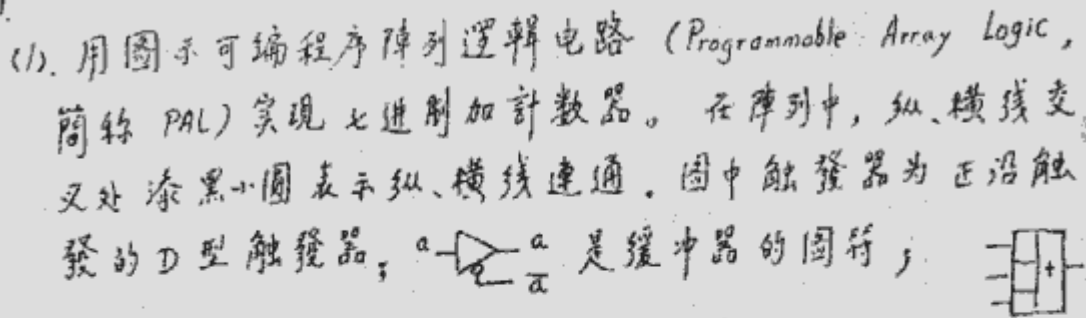 (1). 用圖示可编程序陣列邏輯电路 (Programmable Array Logic,
簡称 PAL) 实現七進制加計數器。在陣列中, 纵、横线交
叉处漆黑小圓表示纵、横线連通. 图中触發器为正沿触
發的 D 型触發器; a a ā 是缓冲器的图符; +